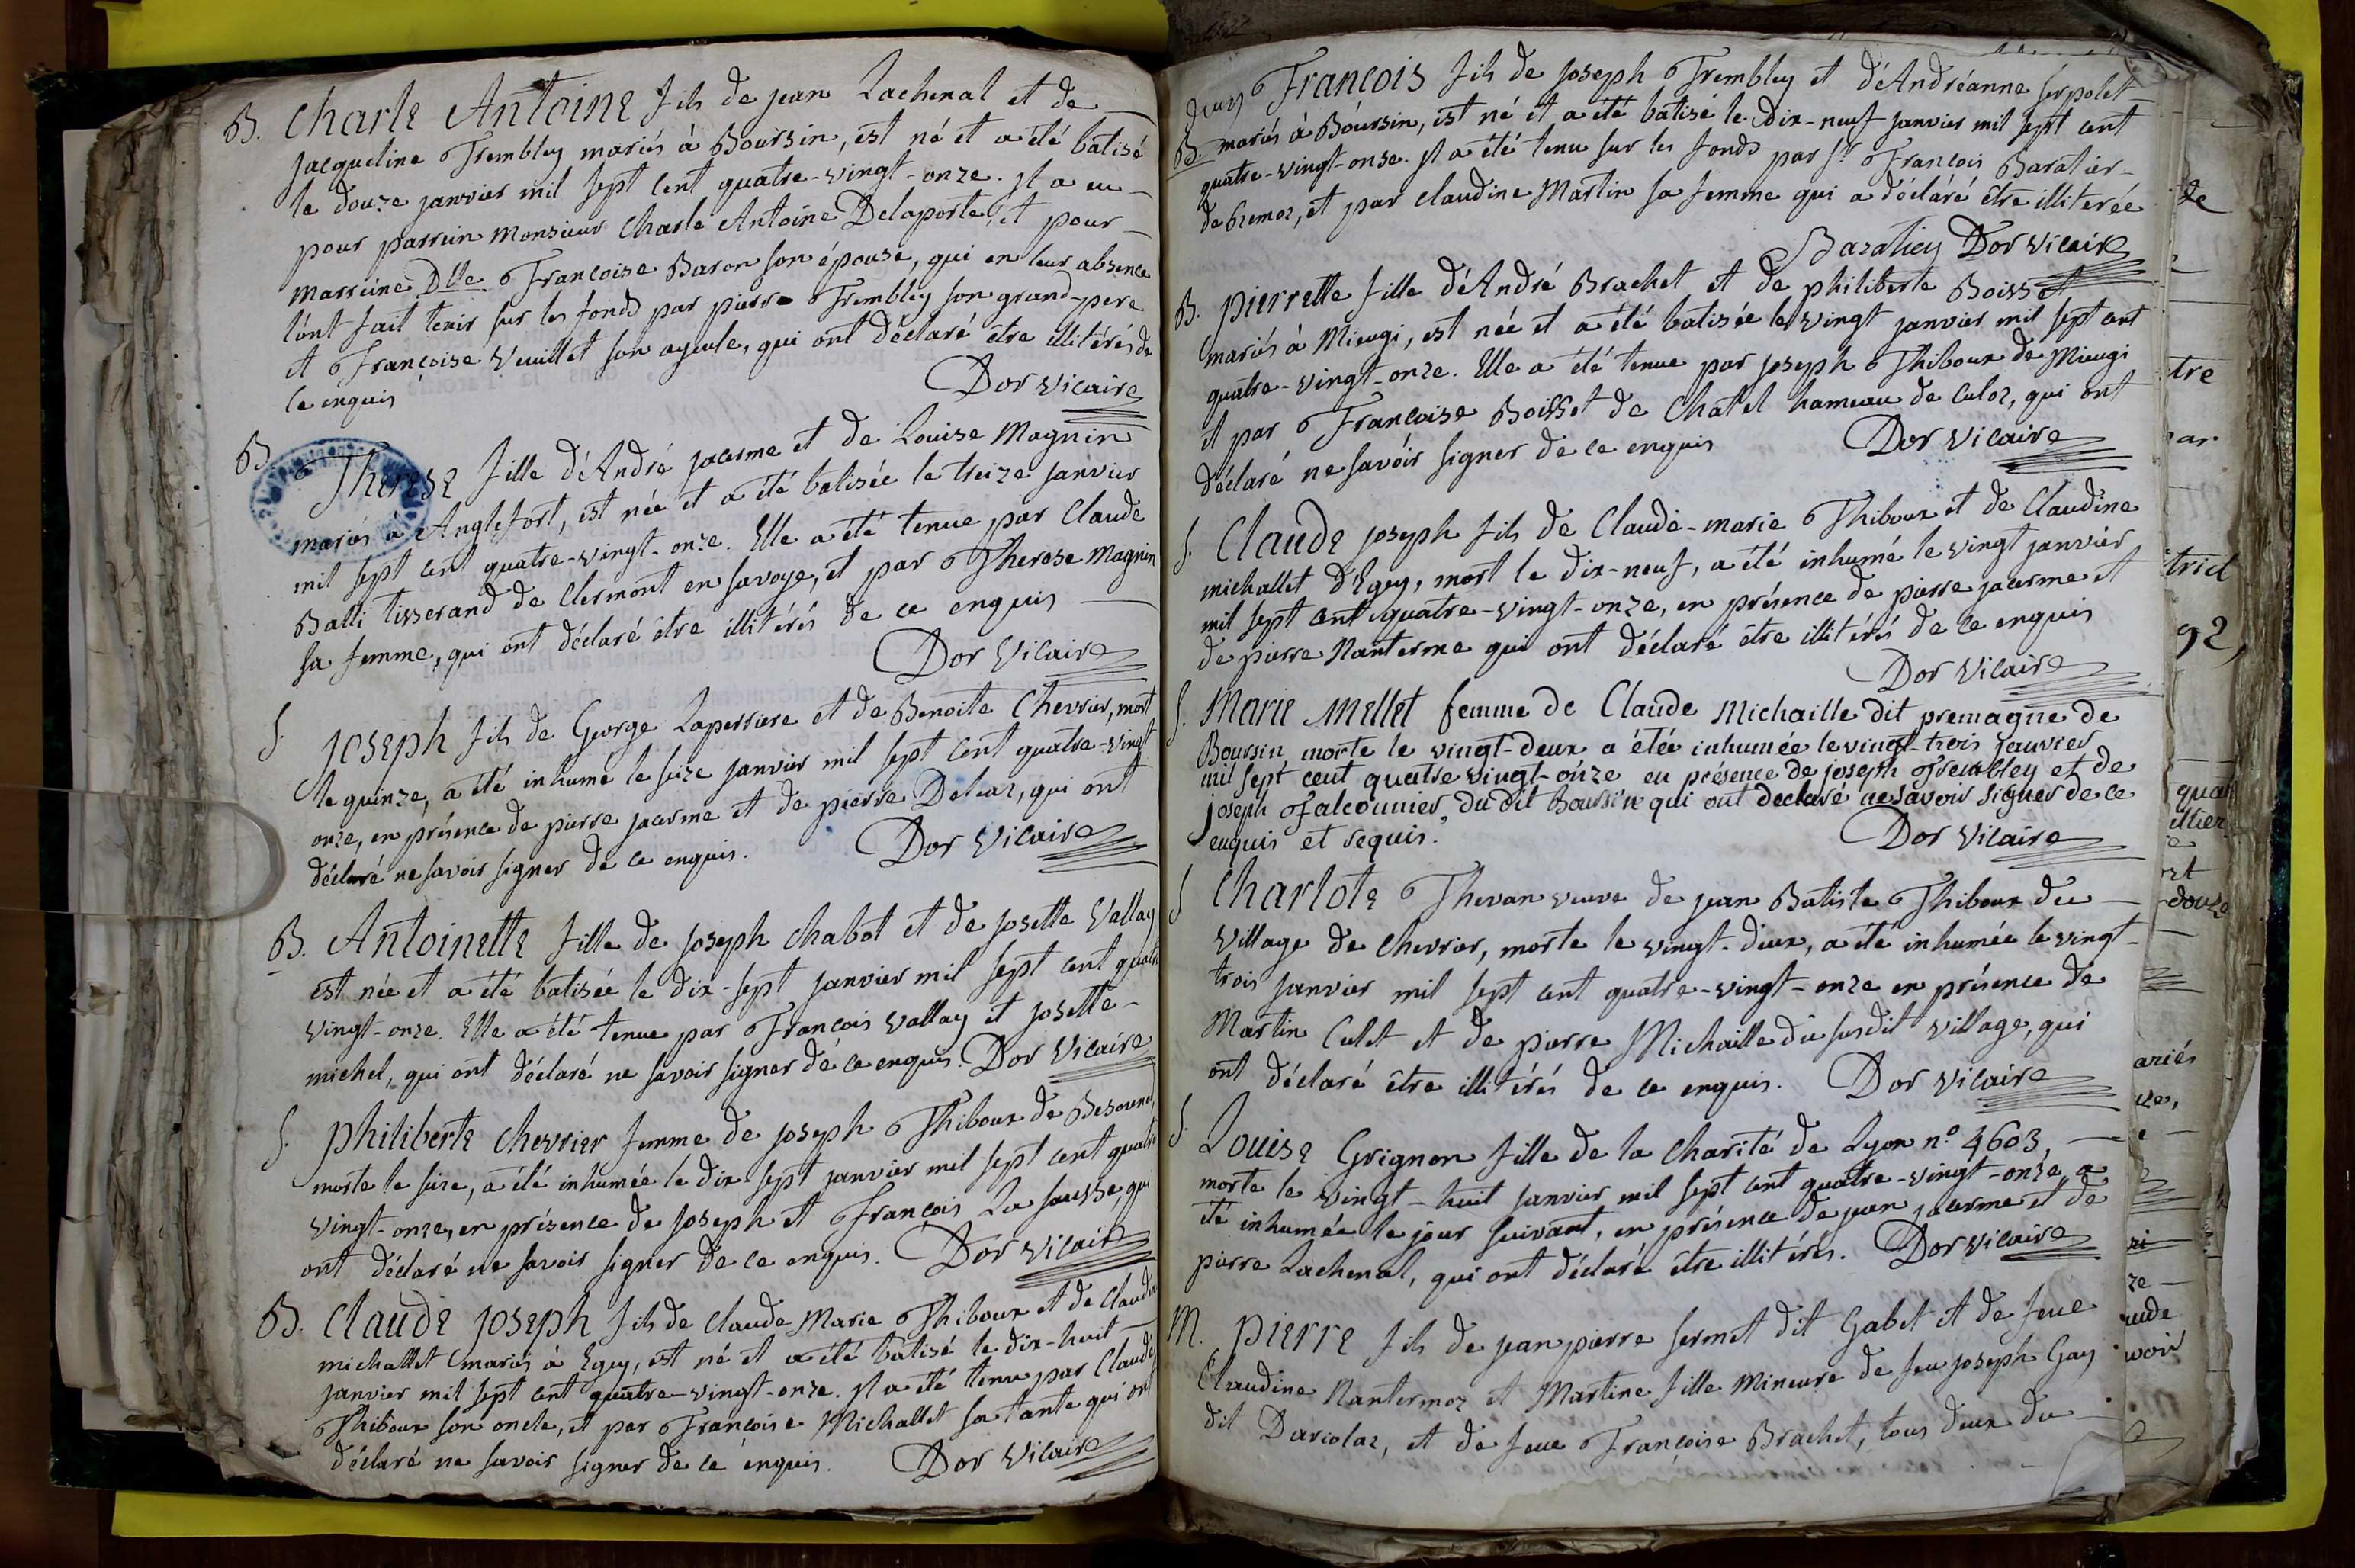 B. Charle Antoine fils de jean Lachenal et de
jacqueline Trembley mariés à Boursin, est né et a été batisé
le douze janvier mil sept cent quatre-vingt-onze. il a eu
pour parrein monsieur Charle Antoine Delaporte, et pour
marreine Dlle Francoise Baron son épouse, qui en leur absence
l'ont fait tenir sur les fonds par pierre Trembley son grand-pere
et Françoise Vuillet son ayeule, qui ont déclaré être illitérés de
ce enquis Dor vicaire
B. Therese fille d'André jacerme et de Louise Magnin
mariés à Anglefort, est née et a été batisée le treize janvier
mil sept cent quatre-vingt-onze. Elle a été tenue par Claude
Balli tisserand de Clermont en savoye, et par Therese Magnin
sa femme, qui ont déclaré être illitérés de ce enquis
Dor Vicaire
S. joseph fils de George Laperriere et de Benoite Chevrier, mort
le quinze, a été inhumé le seize janvier mil sept cent quatre-vingt
onze, en présence de pierre jacerme et de pierre Deluaz, qui ont
déclaré ne savoir signer de ce enquis. Dor Vicaire
B. Antoinette fille de joseph chabot et de josette Vallay
est née et a été batisée le dix-sept janvier mil sept cent quatre
vingt-onze. Elle a été tenue par François vallay et josette
michel, qui ont déclaré ne savoir signer de ce enquis. Dor Vicaire
S. philiberte chevrier femme de joseph Thiboux de
morte le seize, a été inhumée le dix sept janvier mil sept cent quatre
vingt-onze, en présence de joseph et François La sausse, qui
ont déclaré ne savoir signer de ce enquis. Dor Vicaire
B. Claude joseph fils de claude Marie Thiboux et de Claudine
michallet mariés à Egey, est né et a été batisé le dix-huit
janvier mil sept cent quatre-vingt-onze. il a été tenu par Claude
Thiboux son oncle, et par Françoise Michallet sa tante qui ont
déclaré ne savoir signer de ce enquis. Dor Vicaire
François fils de joseph Trembley et d'Andréanne serpolet
B. mariés à Boursin, est né et a été batisé le dix-neuf janvier mil sept cent
quatre-vingt-onze. il a été tenu sur les fonds par Sr. François Baratier
de , et par claudine Martin sa femme qui a déclaré être illiterée
Dor vicaire
B. pierrette fille d'André Brachet et de philiberte Boisset
mariés à Mieugi, est née et a été batisée le vingt janvier mil sept cent
quatre-vingt-onze. Elle a été tenue par joseph Thiboux de Mieugi
et par Françoise Boisset de Chatel hameau de Culoz, qui ont
déclaré ne savoir signer de ce enquis Dor Vicaire
S. Claude joseph fils de Claude-marie Thiboux et de Claudine
michallet d'Egey, mort le dix-neuf, a été inhumé le vingt janvier
mil sept cent quatre-vingt-onze, en présence de pierre jacerme et
de pierre Nanterme qui ont déclaré être illitérés de ce enquis
Dor Vicaire
S. Marie Mellet femme de Claude Michaille dit premagne de
Boursin morte le vingt-deux a étée inhumée le vingt-trois janvier
mil sept cent quatre vingt-onze en présence de joseph Trembley et de
joseph falconnier, du dit Boursin qui ont declaré ne savoir signer de ce
enquis et requis. Dor Vicaire
S. Charlote Thevan veuve de jean Batiste Thiboux du
village de Chevrier, morte le vingt-deux, a été inhumée le vingt-
trois janvier mil sept cent quatre-vingt-onze en présence de
Martin Culet et de pierre Michaille du susdit village, qui
ont déclaré être illitérés de ce enquis. Dor vicaire
S. Louise Grignon fille de la Charité de Lyon n.º 4603,
morte le vingt-huit janvier mil sept cent quatre-vingt-onze, a
été inhumée le jour suivant, en présence de jean jacerme et de
pierre Lachenal, qui ont déclaré être illitérés. Dor vicaire
M. pierre fils de jean pierre sermet dit Gabet et de feue
Claudine Nantermoz et Martine fille mineure de feu joseph Gay
dit Dariolaz, et de feue Françoise Brachet, tous deux du